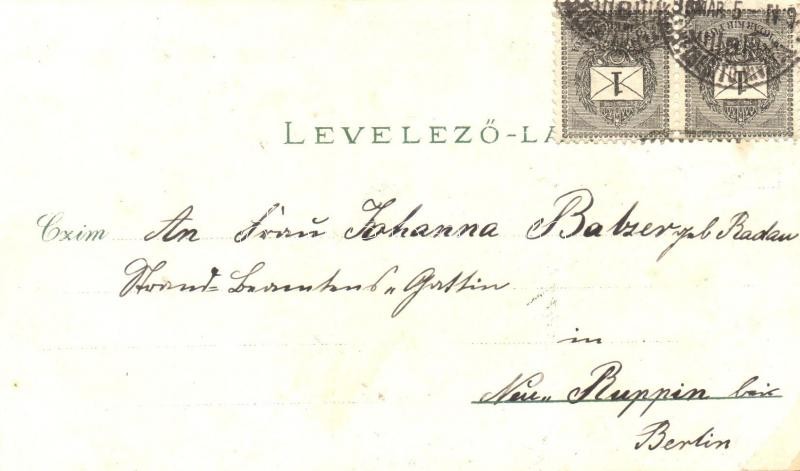 MÁR 5
1 1
LEVELEZŐ-LA
Czim An Frau Johanna Balzer geb Radau
Strand-Beamtens-Gattin
in
Neu-Ruppin bei
Berlin